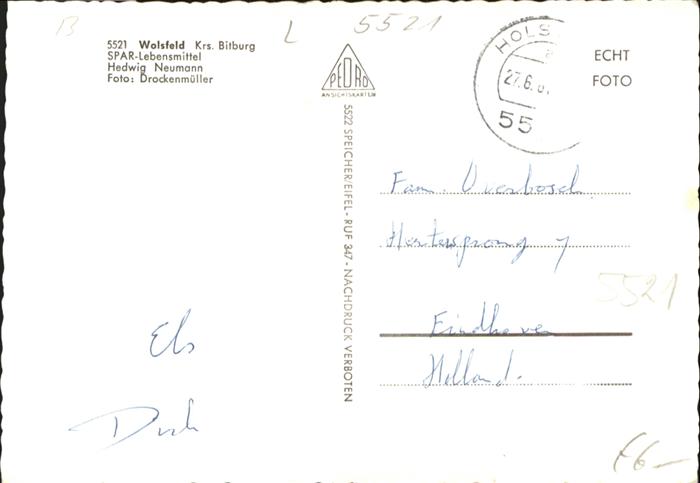 B
L 5521
5521 Wolsfeld Krs. Bitburg
SPAR-Lebensmittel
Hedwig Neumann
Foto: Drockenmüller
PEDRO
ANSICHTSKARTEN
5522 SPEICHER/EIFEL - RUF 347 - NACHDRUCK VERBOTEN
HOLS
27.6.
55
ECHT
FOTO
Fam. Overbosch
Hertesprong 7
5521
Eindhoven
Holland.
Els
€6-